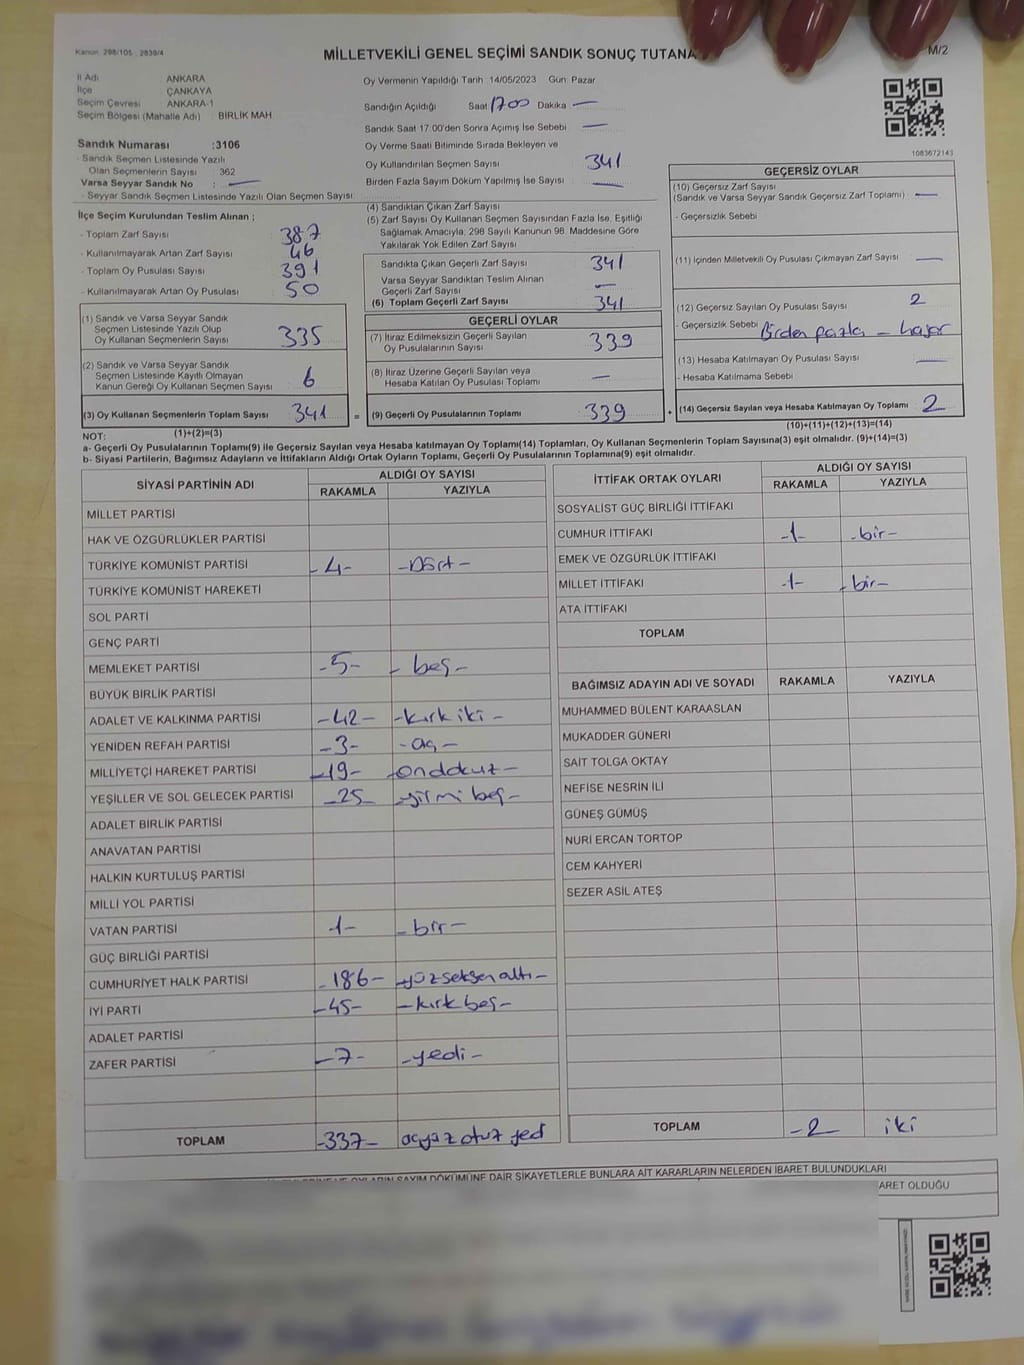 Kanun: 298/105 , 2839/4
MİLLETVEKİLİ GENEL SEÇİMİ SANDIK SONUÇ TUTANA
M/2
İl Adı ANKARA
İlçe ÇANKAYA
Seçim Çevresi ANKARA-1
Seçim Bölgesi (Mahalle Adı) : BİRLİK MAH
Sandık Numarası :3106
- Sandık Seçmen Listesinde Yazılı
Olan Seçmenlerin Sayısı : 362
Varsa Seyyar Sandık No : —
- Seyyar Sandık Seçmen Listesinde Yazılı Olan Seçmen Sayısı
Oy Vermenin Yapıldığı Tarih :14/05/2023 Gün: Pazar
Sandığın Açıldığı Saat 1700 Dakika —
Sandık Saat 17:00'den Sonra Açılmış İse Sebebi —
Oy Verme Saati Bitiminde Sırada Bekleyen ve
Oy Kullandırılan Seçmen Sayısı 341
Birden Fazla Sayım Döküm Yapılmış İse Sayısı —
1083672143
İlçe Seçim Kurulundan Teslim Alınan ;
- Toplam Zarf Sayısı 387
- Kullanılmayarak Artan Zarf Sayısı 46
- Toplam Oy Pusulası Sayısı 391
- Kullanılmayarak Artan Oy Pusulası 50
(1) Sandık ve Varsa Seyyar Sandık
Seçmen Listesinde Yazılı Olup
Oy Kullanan Seçmenlerin Sayısı 335
(2) Sandık ve Varsa Seyyar Sandık
Seçmen Listesinde Kayıtlı Olmayan
Kanun Gereği Oy Kullanan Seçmen Sayısı 6
(3) Oy Kullanan Seçmenlerin Toplam Sayısı 341 =
(1)+(2)=(3)
(4) Sandıktan Çıkan Zarf Sayısı
(5) Zarf Sayısı Oy Kullanan Seçmen Sayısından Fazla İse, Eşitliği
Sağlamak Amacıyla; 298 Sayılı Kanunun 98. Maddesine Göre
Yakılarak Yok Edilen Zarf Sayısı
Sandıkta Çıkan Geçerli Zarf Sayısı 341
Varsa Seyyar Sandıktan Teslim Alınan
Geçerli Zarf Sayısı —
(6) Toplam Geçerli Zarf Sayısı 341
GEÇERLİ OYLAR
(7) İtiraz Edilmeksizin Geçerli Sayılan
Oy Pusulalarının Sayısı 339
(8) İtiraz Üzerine Geçerli Sayılan veya
Hesaba Katılan Oy Pusulası Toplamı —
(9) Geçerli Oy Pusulalarının Toplamı 339 +
GEÇERSİZ OYLAR
(10) Geçersiz Zarf Sayısı
(Sandık ve Varsa Seyyar Sandık Geçersiz Zarf Toplamı) —
- Geçersizlik Sebebi
(11) İçinden Milletvekili Oy Pusulası Çıkmayan Zarf Sayısı —
(12) Geçersiz Sayılan Oy Pusulası Sayısı 2
- Geçersizlik Sebebi Birden fazla –
(13) Hesaba Katılmayan Oy Pusulası Sayısı —
- Hesaba Katılmama Sebebi
(14) Geçersiz Sayılan veya Hesaba Katılmayan Oy Toplamı 2
(10)+(11)+(12)+(13)=(14)
NOT:
a- Geçerli Oy Pusulalarının Toplamı(9) ile Geçersiz Sayılan veya Hesaba katılmayan Oy Toplamı(14) Toplamları, Oy Kullanan Seçmenlerin Toplam Sayısına(3) eşit olmalıdır. (9)+(14)=(3)
b- Siyasi Partilerin, Bağımsız Adayların ve İttifakların Aldığı Ortak Oyların Toplamı, Geçerli Oy Pusulalarının Toplamına(9) eşit olmalıdır.
SİYASİ PARTİNİN ADI ALDIĞI OY SAYISI
RAKAMLA YAZIYLA
MİLLET PARTİSİ
HAK VE ÖZGÜRLÜKLER PARTİSİ
TÜRKİYE KOMÜNİST PARTİSİ -4- -Dört-
TÜRKİYE KOMÜNİST HAREKETİ
SOL PARTİ
GENÇ PARTİ
MEMLEKET PARTİSİ -5- - beş-
BÜYÜK BİRLİK PARTİSİ
ADALET VE KALKINMA PARTİSİ -42- -kırk iki -
YENİDEN REFAH PARTİSİ -3- - üç -
MİLLİYETÇİ HAREKET PARTİSİ -19- -ondokuz-
YEŞİLLER VE SOL GELECEK PARTİSİ -25- -yirmi beş-
ADALET BİRLİK PARTİSİ
ANAVATAN PARTİSİ
HALKIN KURTULUŞ PARTİSİ
MİLLİ YOL PARTİSİ
VATAN PARTİSİ -1- -bir-
GÜÇ BİRLİĞİ PARTİSİ
CUMHURİYET HALK PARTİSİ -186- -yüz seksen altı-
İYİ PARTİ -45- -kırk beş-
ADALET PARTİSİ
ZAFER PARTİSİ -7- -yedi-
TOPLAM -337- üçyüz otuz yedi
İTTİFAK ORTAK OYLARI ALDIĞI OY SAYISI
RAKAMLA YAZIYLA
SOSYALİST GÜÇ BİRLİĞİ İTTİFAKI
CUMHUR İTTİFAKI -1- -bir-
EMEK VE ÖZGÜRLÜK İTTİFAKI
MİLLET İTTİFAKI -1- -bir-
ATA İTTİFAKI
TOPLAM
BAĞIMSIZ ADAYIN ADI VE SOYADI RAKAMLA YAZIYLA
MUHAMMED BÜLENT KARAASLAN
MUKADDER GÜNERİ
SAİT TOLGA OKTAY
NEFİSE NESRİN İLİ
GÜNEŞ GÜMÜŞ
NURİ ERCAN TORTOP
CEM KAHYERİ
SEZER ASİL ATEŞ
TOPLAM -2- iki
SAYIM DÖKÜMÜNE DAİR ŞİKAYETLERLE BUNLARA AİT KARARLARIN NELERDEN İBARET BULUNDUKLARI
ARET OLDUĞU